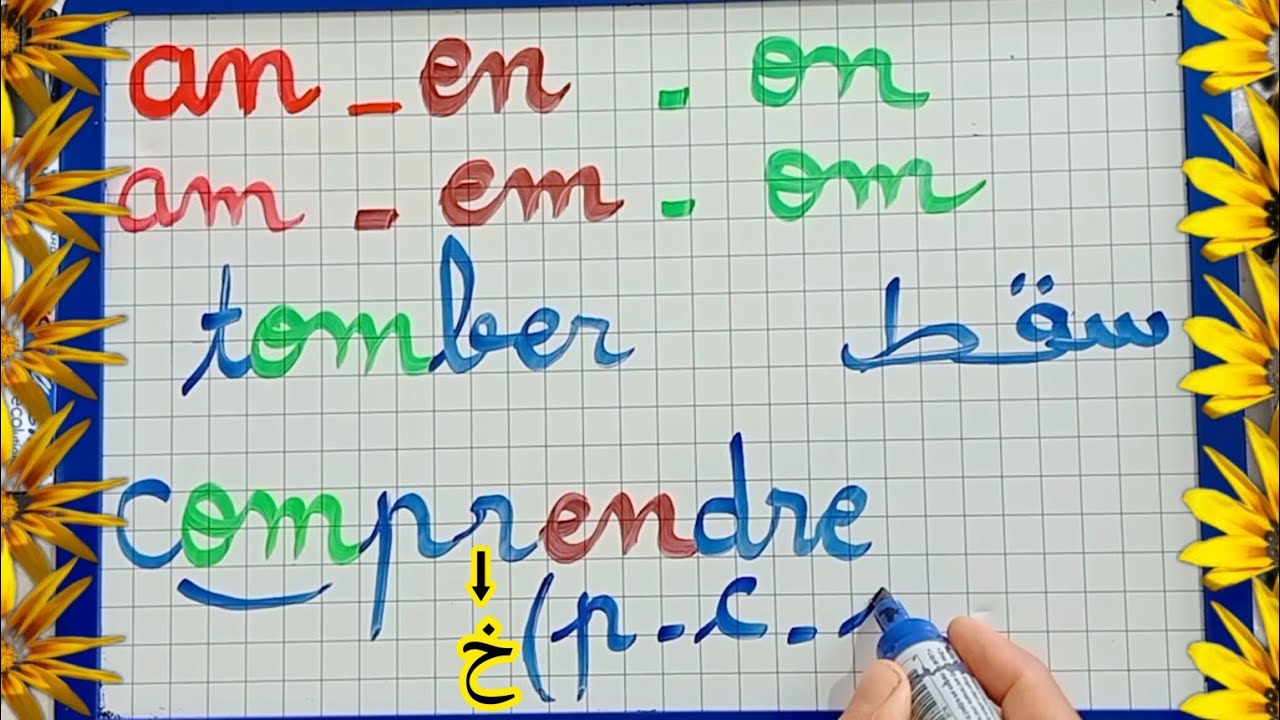 an - en - on
am - em - om
tomber سقط
comprendre
خ (p. c.